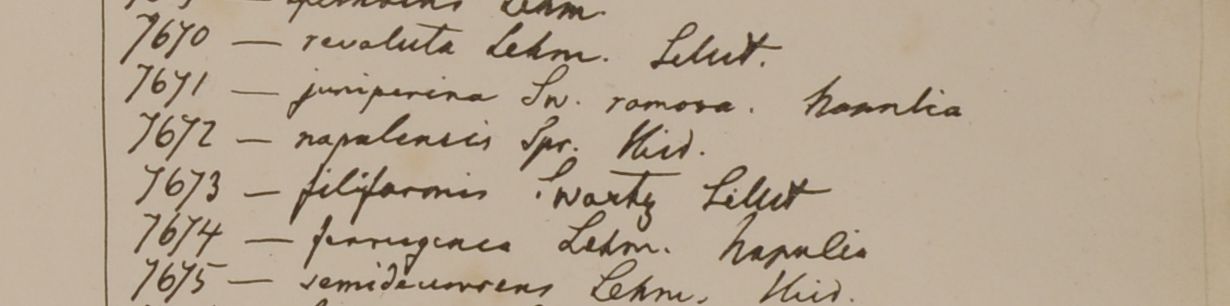 Lehm.
7670 — revoluta Lehm. Silut.
7671 — juniperina Sw. ramosa. Napulia
7672 — napalensis Spr. Ibid.
7673 — filiformis Swartz Sillut
7674 — ferruginea Lehm. Napulia
7675 — semidecurrens Lehm. Ibid.